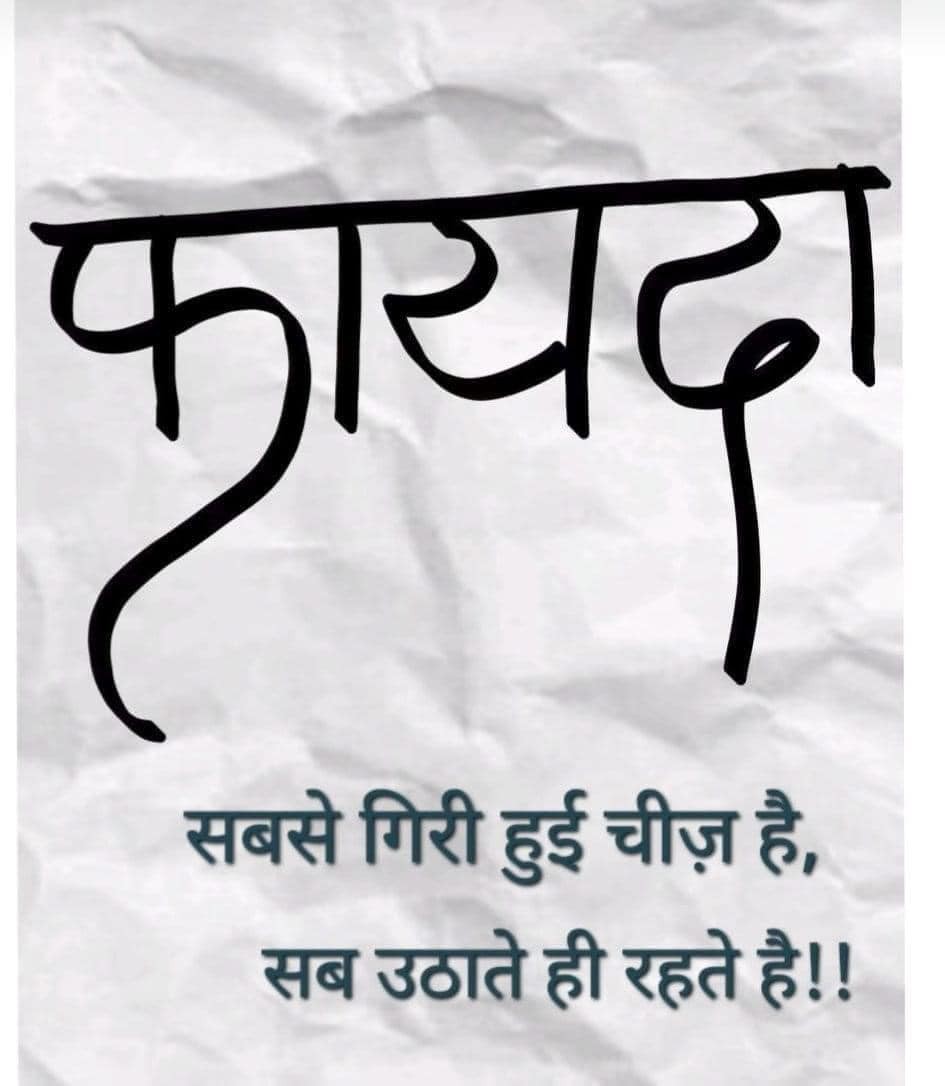 फायदा
सबसे गिरी हुई चीज़ है,
सब उठाते ही रहते है!!